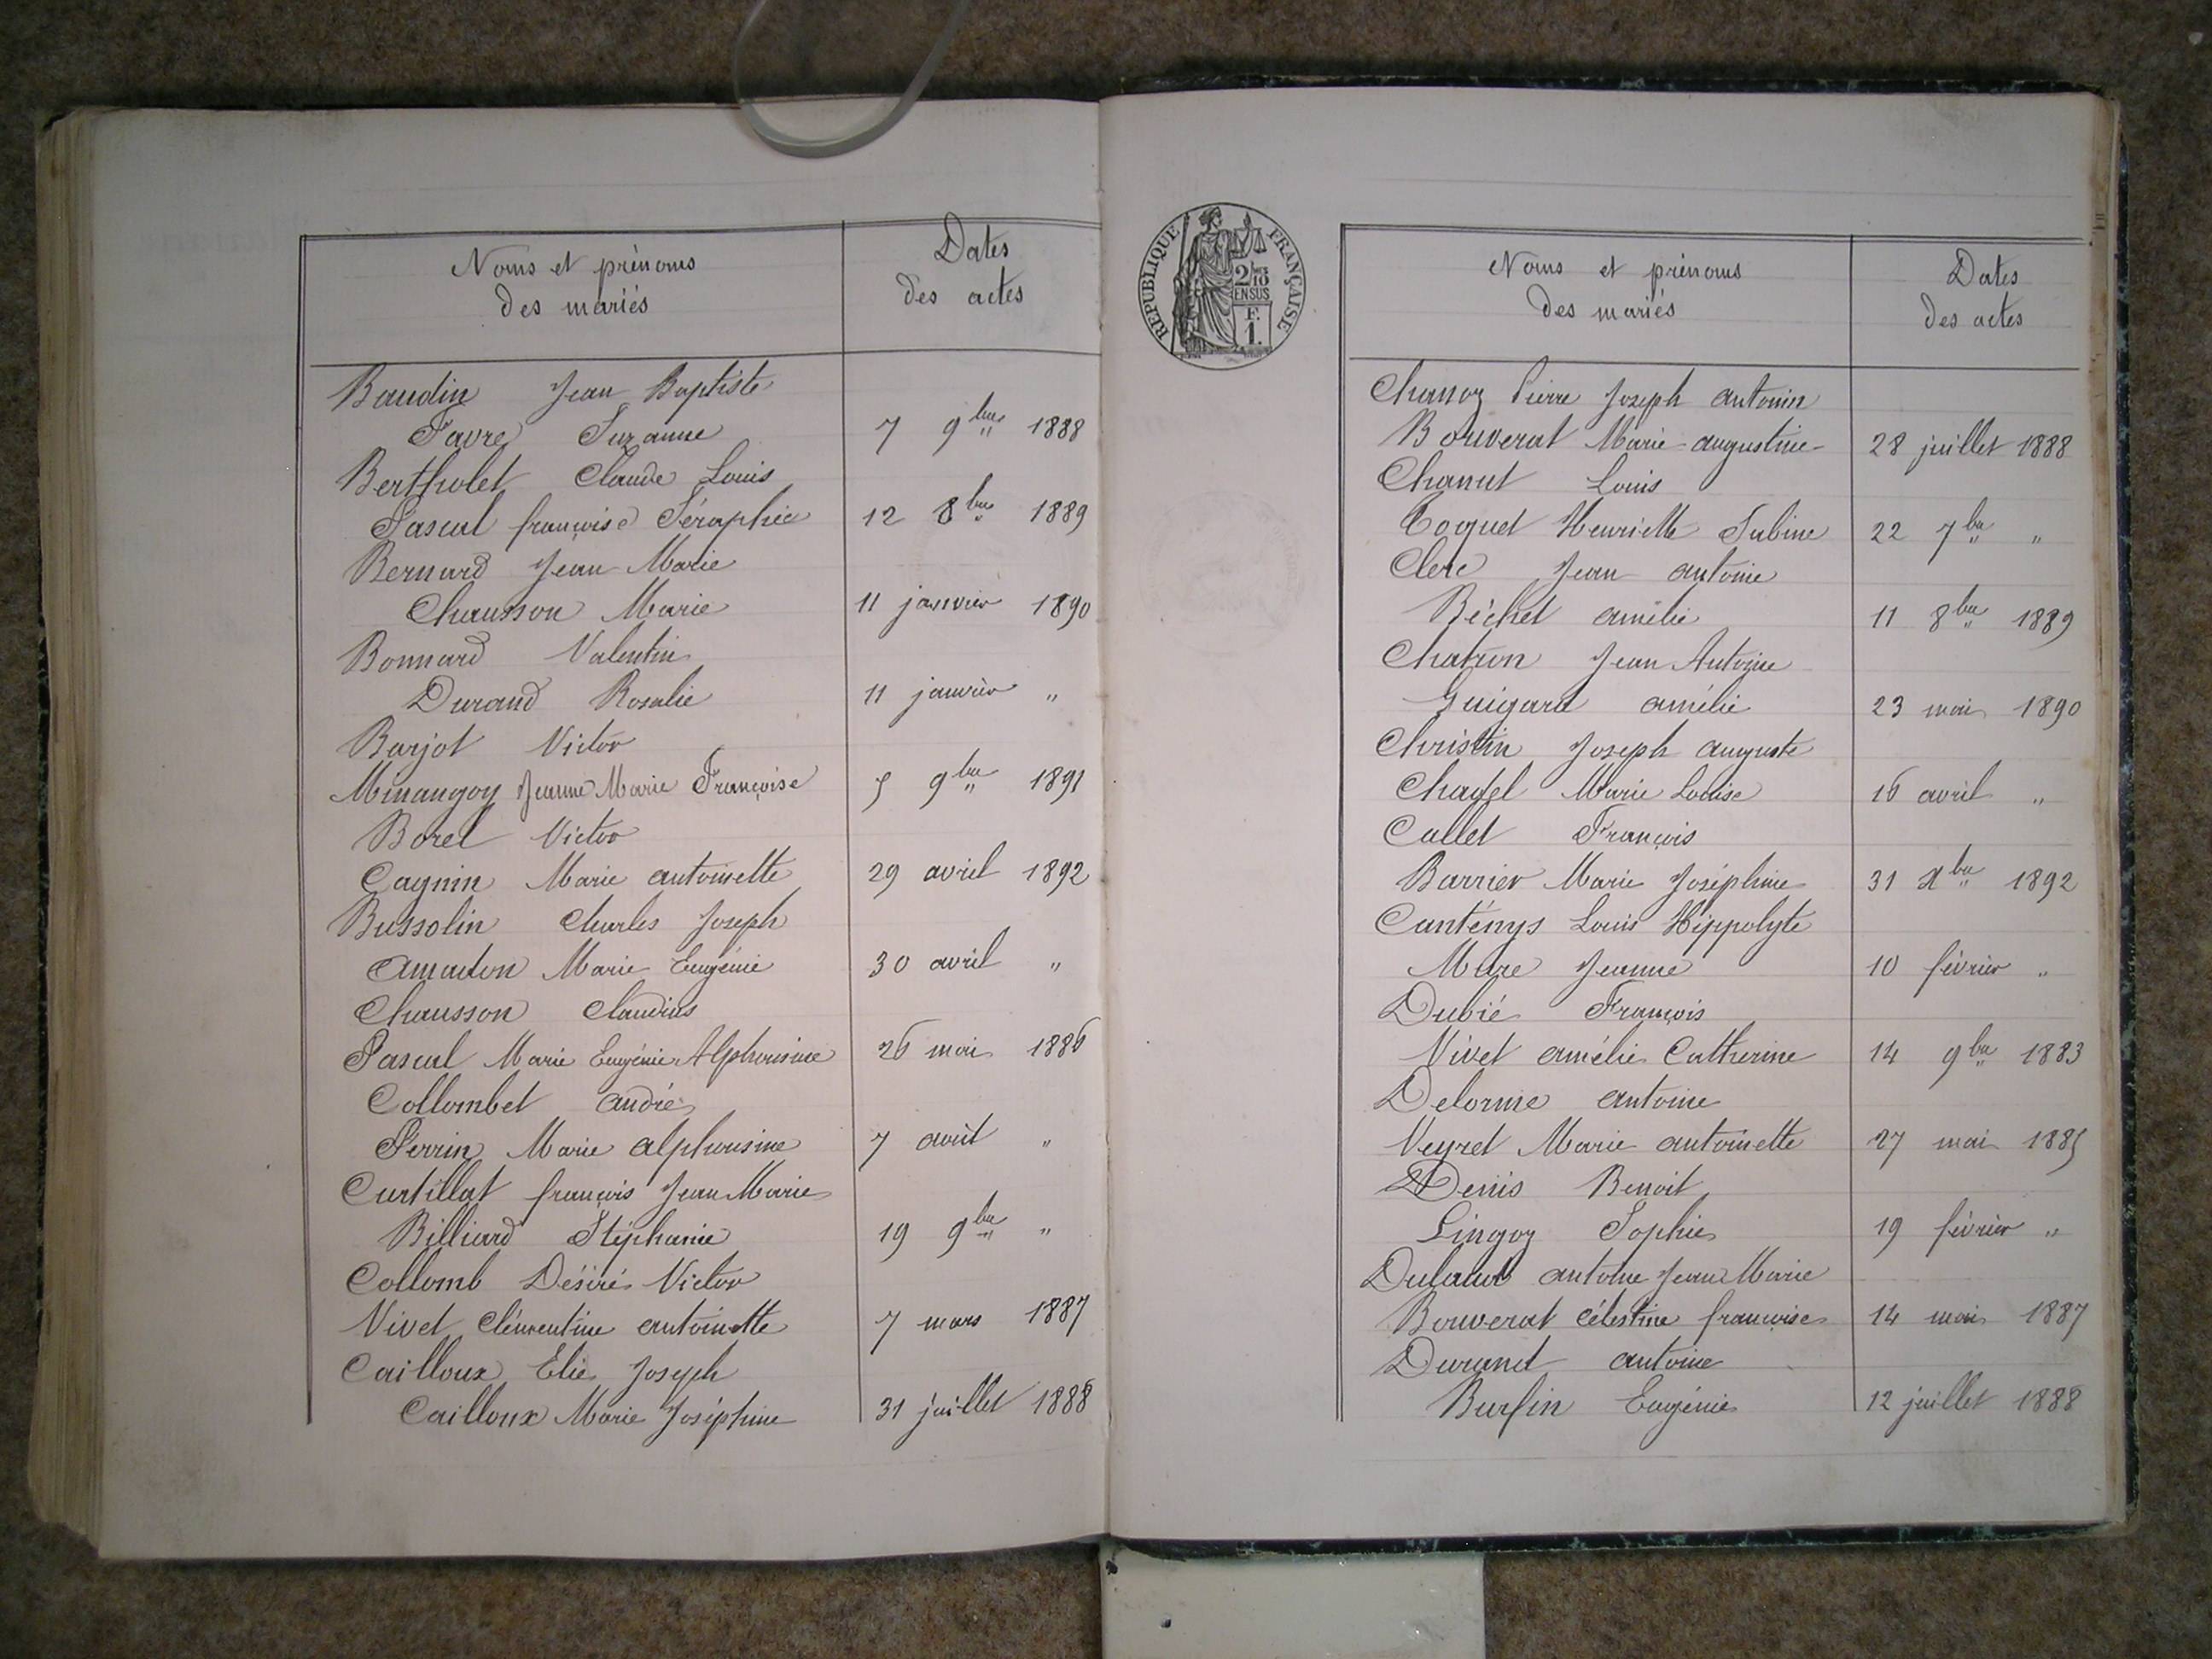 Noms et prénoms
des mariés
Dates
des actes
Baudin Jean Baptiste
Favre Suzanne 7 9bre 1888
Bertholet Claude Louis
Pascal françoise Séraphie 12 8bre 1889
Bernard Jean Marie
Chausson Marie 11 janvier 1890
Bonnard Valentin
Durand Rosalie 11 janvier "
Barjot Victor
Minangoy Jeanne Marie Françoise 5 9bre 1891
Borel Victor
Cagnin Marie antoinette 29 avril 1892
Bussolin Charles Joseph
Amaudon Marie Eugénie 30 avril "
Chausson Claudius
Pascal Marie Eugénie Alphonsine 26 mai 1886
Collombet andré
Perrin Marie alphonsine 7 août "
Curtillat françois Jean Marie
Billiard Stéphanie 19 9bre "
Collomb Désiré Victor
Vivet Clémentine antoinette 7 mars 1887
Cailloux Elie Joseph
Cailloux Marie Joséphine 31 juillet 1888
RÉPUBLIQUE FRANÇAISE
2/10
EN SUS
F.
1.
Noms et prénoms
des mariés
Dates
des actes
Chanoz Pierre Joseph antonin
Bouverat Marie augustine 28 juillet 1888
Chanut Louis
Coquet Henriette Sabine 22 7bre "
Clerc Jean antoine
Béchet amélie 11 8bre 1889
Chatron Jean Antoine
Guigard amélie 23 mai 1890
Christin Joseph auguste
Chagel Marie Louise 16 avril "
Callet François
Barrier Marie Joséphine 31 Xbre 1892
Canténys Louis Hippolyte
Mare Jeanne 10 février "
Dubié François
Vivet amélie Catherine 14 9bre 1883
Delorme antoine
Veyret Marie antoinette 27 mai 1885
Denis Benoit
Lingoz Sophie 19 février "
antoine Jean Marie
Bouverat célestine françoise 14 mai 1887
Durand antoine
Burfin Eugénie 12 juillet 1888